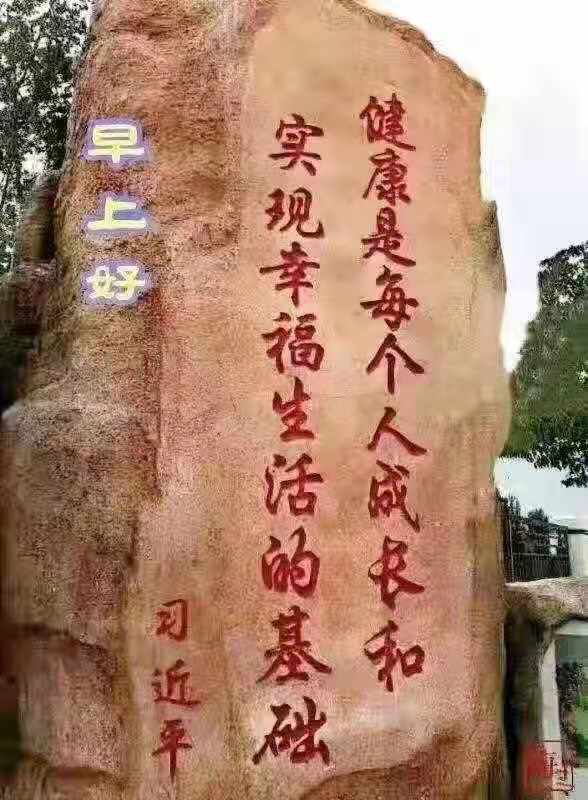 健康是每个人成长和
实现幸福生活的基础
习近平
早上好